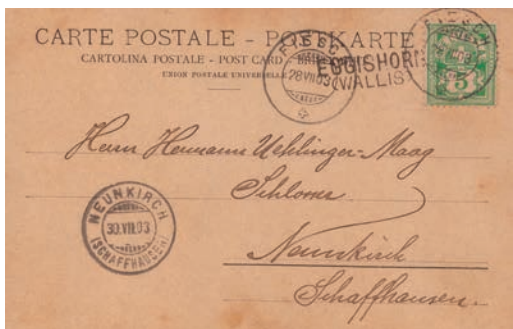 CARTE POSTALE - POSTKARTE
CARTOLINA POSTALE - POST CARD
UNION POSTALE UNIVERSELLE
FIESCH
28 VII 03
EGGISHORN
(WALLIS)
FIESCH
5
Herrn Hermann Uehlinger-Maag
Schlosser
Neunkirch
Schaffhausen.
NEUNKIRCH
30.VII.03
(SCHAFFHAUSEN)